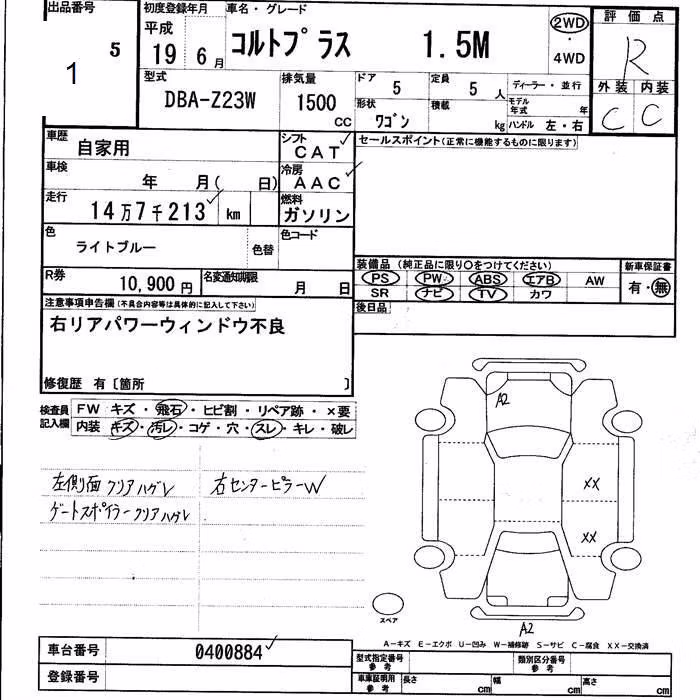 出品番号 初度登録年月 車名・グレード 評価点
1 5 平成 19 6月 コルトプラス 1.5M 2WD ・ 4WD R
型式 DBA-Z23W 排気量 1500 CC ドア 5 定員 5 人 ディーラー・並行 外装 内装
形状 ワゴン 積載 kg モデル年式 年 ハンドル 左・右 C C
車歴 自家用 シフト CAT セールスポイント(正常に機能するものに限ります)
車検 年 月( 日) 冷房 AAC
走行 14万7千213 km 燃料 ガソリン
色 ライトブルー 色替 色コード
装備品 (純正品に限り○をつけてください) 新車保証書
R券 10,900円 名変通知期限 月 日 PS PW ABS エアB AW 有・無
SR ナビ TV カワ
注意事項申告欄(不具合内容等は具体的に記入して下さい) 後日品
右リアパワーウィンドウ不良
修復歴 有〔箇所 〕
検査員記入欄 FW キズ・飛石・ヒビ割・リペア跡・×要
内装 キズ・汚レ・コゲ・穴・スレ・キレ・破レ
左側面クリアハゲレ 右センターピラーW
ゲートスポイラークリアハゲレ
A2
XX
XX
スペア
A2
A-キズ E-エクボ U-凹み W-補修跡 S-サビ C-腐食 XX-交換済
車台番号 0400884 型式指定番号 参考 類別区分番号 参考
登録番号 車庫証明用 参考 長さ cm 幅 cm 高さ cm